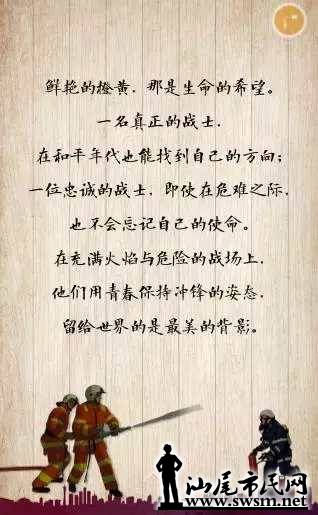 鲜艳的橙黄，那是生命的希望。
一名真正的战士，
在和平年代也能找到自己的方向；
一位忠诚的战士，即使在危难之际，
也不会忘记自己的使命。
在充满火焰与危险的战场上，
他们用青春保持冲锋的姿态，
留给世界的是最美的背影。
汕尾市民网
www.swsm.net